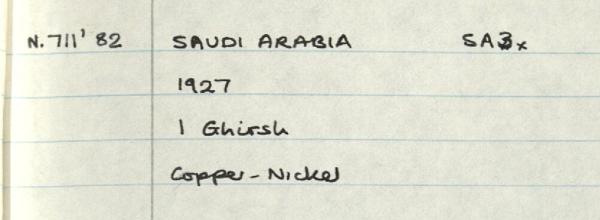 N. 711' 82 SAUDI ARABIA SA3x
1927
1 Ghirsh
Copper-Nickel